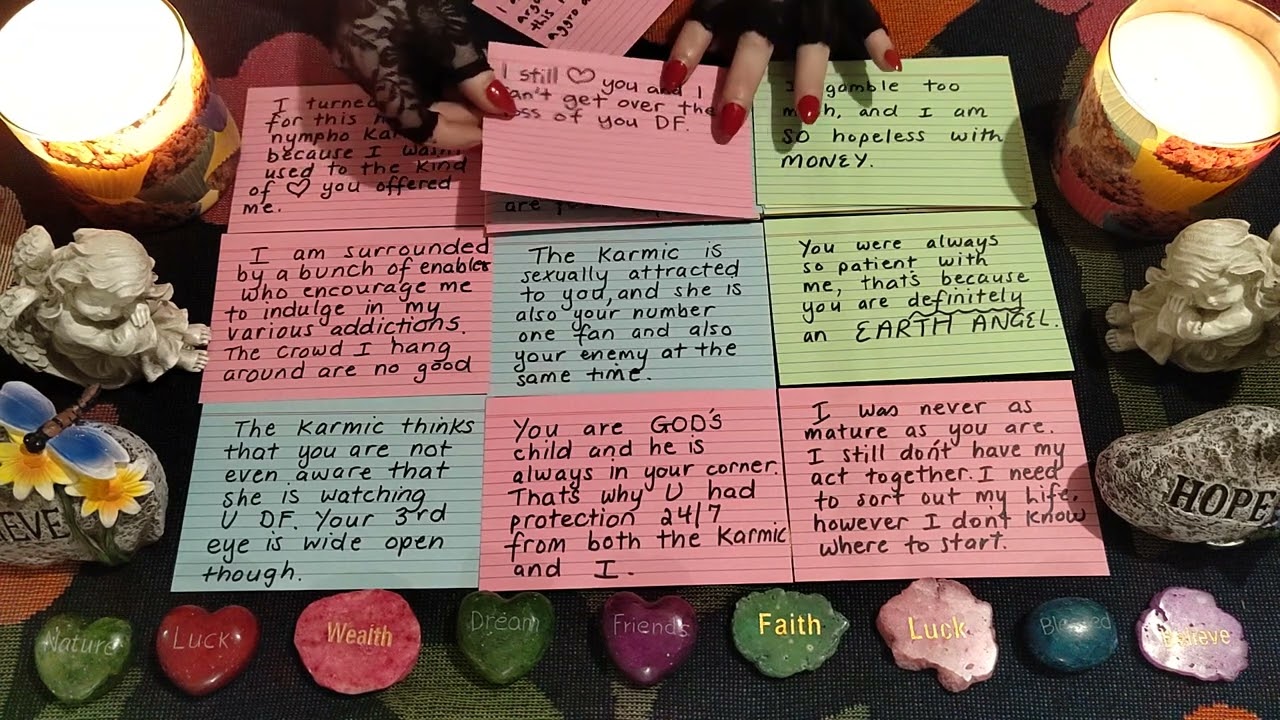 this
aggro
I turned
for this
nympho Kar
because I wasn't
used to the kind
of ♡ you offered
me.
I still ♡ you and I
can't get over the
loss of you DF.
are
I gamble too
much, and I am
SO hopeless with
MONEY.
I am surrounded
by a bunch of enabler
who encourage me
to indulge in my
various addictions.
The crowd I hang
around are no good
The Karmic is
sexually attracted
to you, and she is
also your number
one fan and also
your enemy at the
same time.
You were always
so patient with
me, thats because
you are definitely
an EARTH ANGEL.
The Karmic thinks
that you are not
even aware that
she is watching
U DF. Your 3rd
eye is wide open
though.
You are GOD'S
child and he is
always in your corner.
Thats why U had
protection 24/7
from both the Karmic
and I.
I was never as
mature as you are.
I still don't have my
act together. I need
to sort out my life,
however I dont know
where to start.
IEVE
HOPE
Nature
Luck
Wealth
Dream
Friends
Faith
Luck
Blessed
Believe